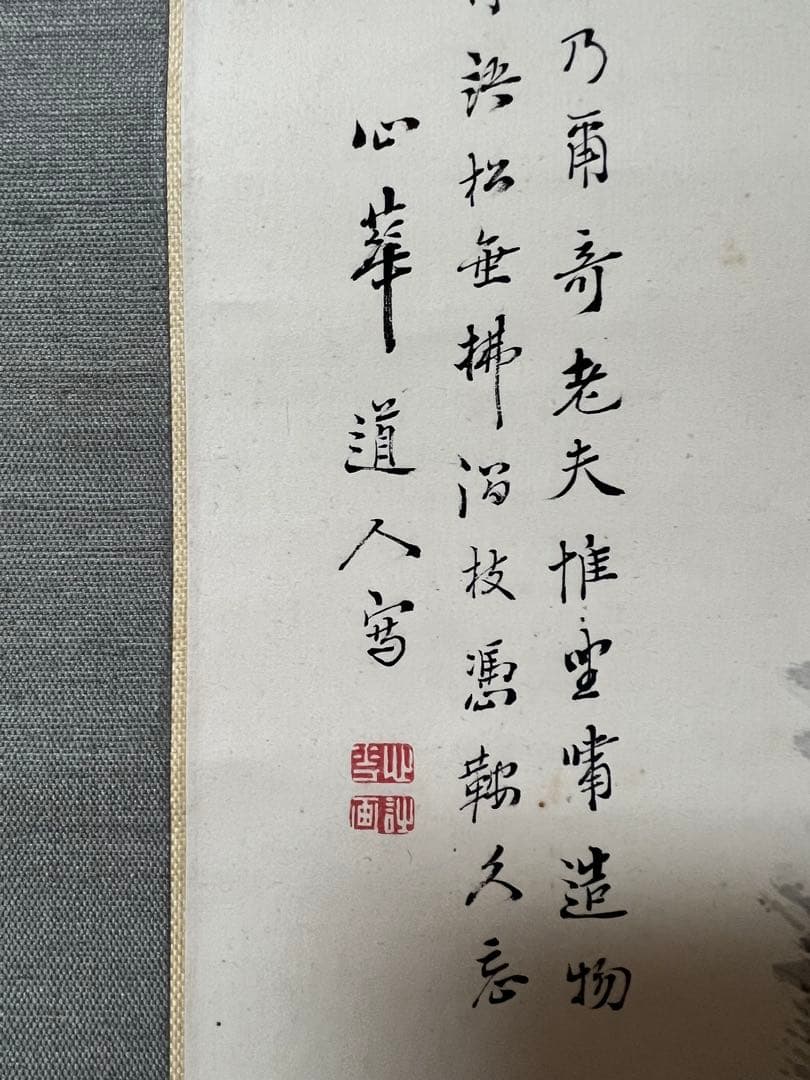 乃爾奇老夫惟坐嘯造物
語松無拂澗枝憑鞍久忘
心華道人寫